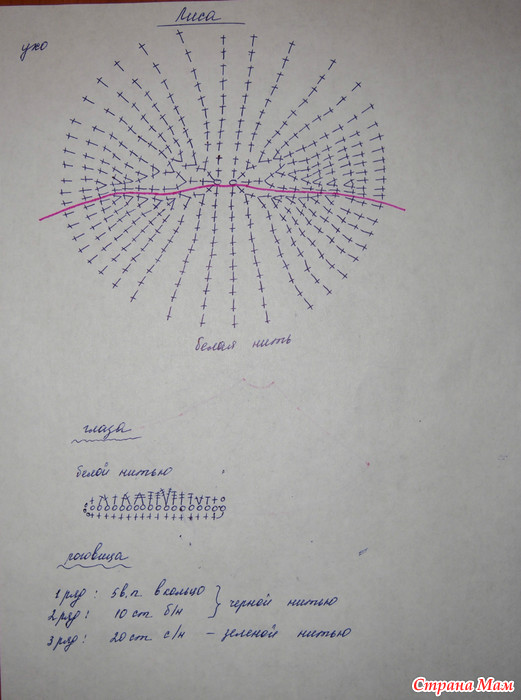 Лиса
ухо
белая нить
глаза
белой нитью
роговица
1 ряд: 5 в.п. в кольцо
2 ряд: 10 ст. б/н } черной нитью
3 ряд: 20 ст. с/н – зеленой нитью
Страна Мам